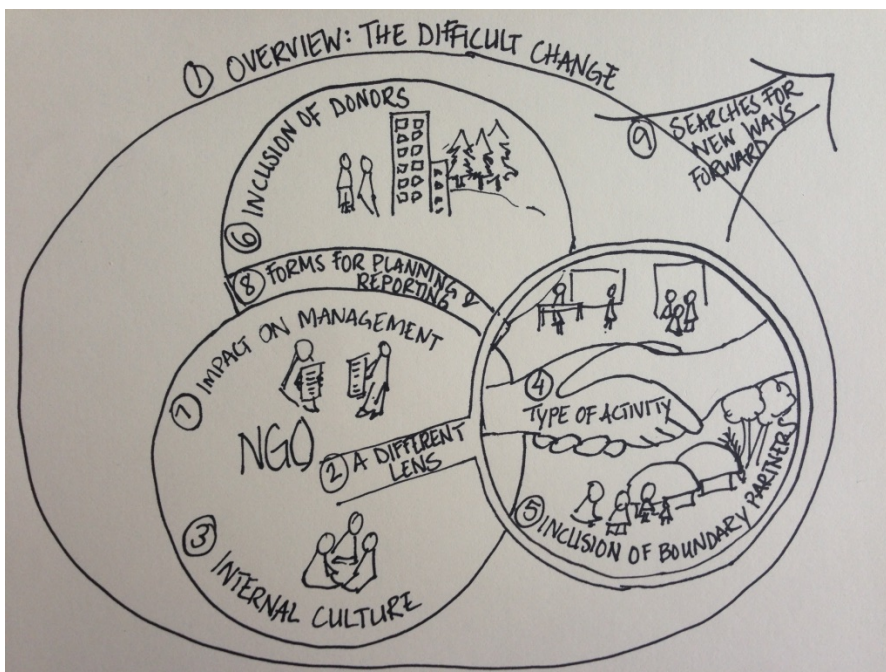 ① OVERVIEW: THE DIFFICULT CHANGE
⑨ SEARCHES FOR
NEW WAYS
FORWARD
⑥ INCLUSION OF DONORS
⑧ FORMS FOR PLANNING &
REPORTING
⑦ IMPACT ON MANAGEMENT
NGO
② A DIFFERENT
LENS
③ INTERNAL CULTURE
④
TYPE OF ACTIVITY
⑤ INCLUSION OF BOUNDARY PARTNERS